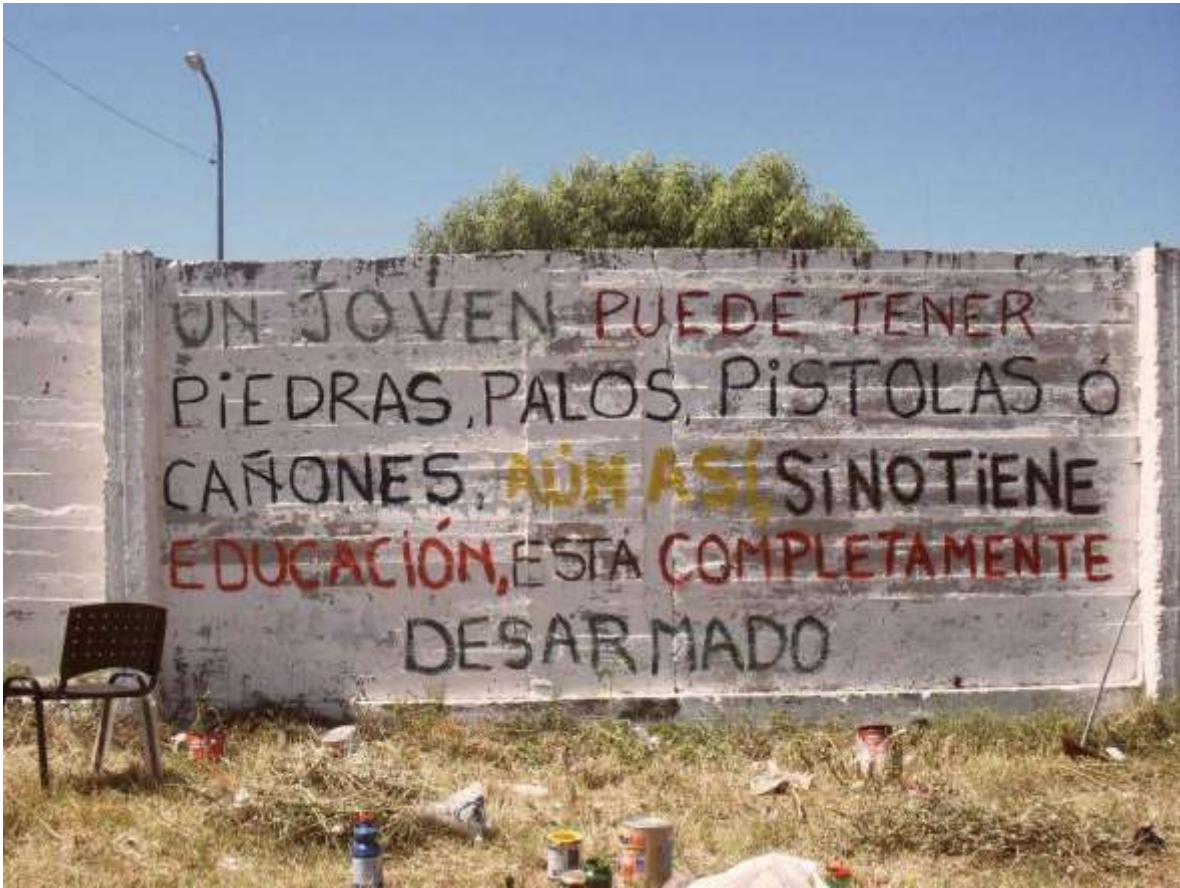 UN JOVEN PUEDE TENER
PiEDRAS, PALOS, PiSTOLAS Ó
CAÑONES, AÚN ASÍ, Si NO TiENE
EDUCACiÓN, ESTÁ COMPLETAMENTE
DESARMADO